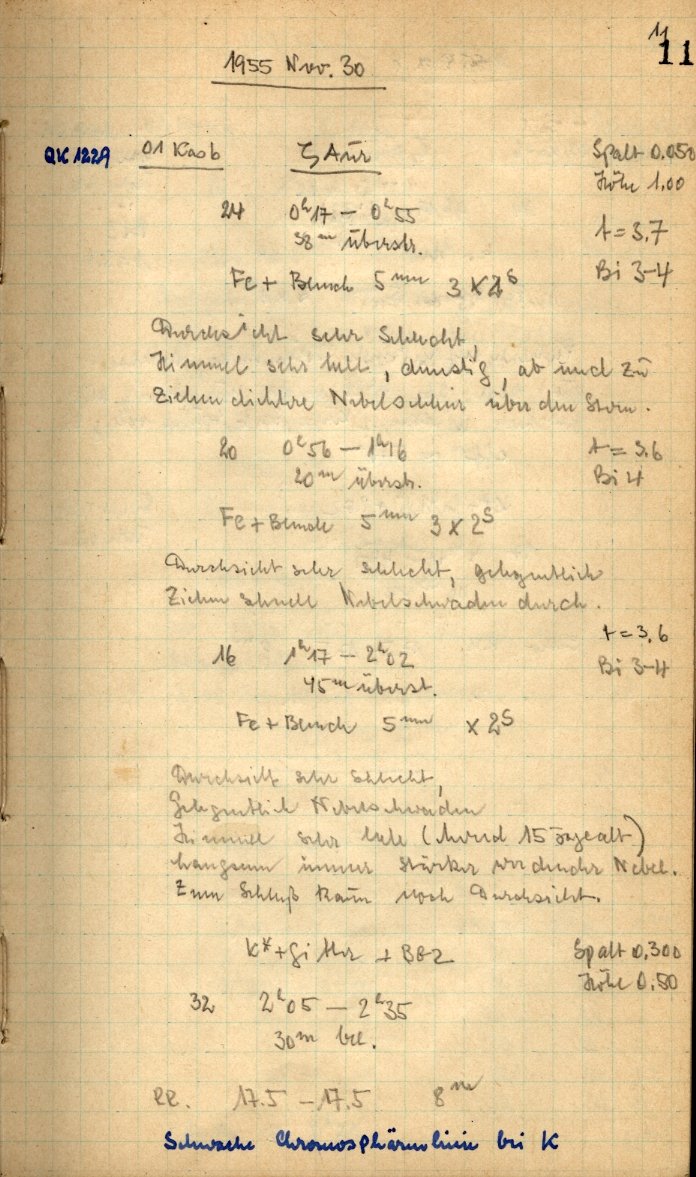 11
11
1955 Nov. 30
QK 1229 01 Kas b ζ Aur Spalt 0.050
Höhe 1.00
24 0ʰ17 – 0ʰ55 t = 3,7
38ᵐ überstr.
Fe + Bmch 5ᵐᵐ 3 x 2ˢ Bi 3-4
Durchsicht sehr schlecht,
Himmel sehr hell, dunstig, ab und zu
ziehen dichtere Nebelschleier über den Stern.
20 0ʰ56 – 1ʰ16 t = 3,6
20ᵐ überstr. Bi 4
Fe + 5ᵐᵐ 3 x 2ˢ
Durchsicht sehr schlecht, gelegentlich
ziehen schnell Nebelschwaden durch.
t = 3,6
16 1ʰ17 – 2ʰ02 Bi 3-4
45ᵐ überst.
Fe + 5ᵐᵐ x 2ˢ
Durchsicht sehr schlecht,
Gelegentlich Nebelschwaden
Himmel sehr hell (Mond 15 Tage alt)
Langsam immer stärker werdender Nebel.
Zum Schluß kaum noch Durchsicht.
K* + Gitter + BG2 Spalt 0,300
Höhe 0.50
32 2ʰ05 – 2ʰ35
30ᵐ bel.
RR. 17.5 – 17.5 8ᵐ
Schwache Chromosphärenlinie bei K